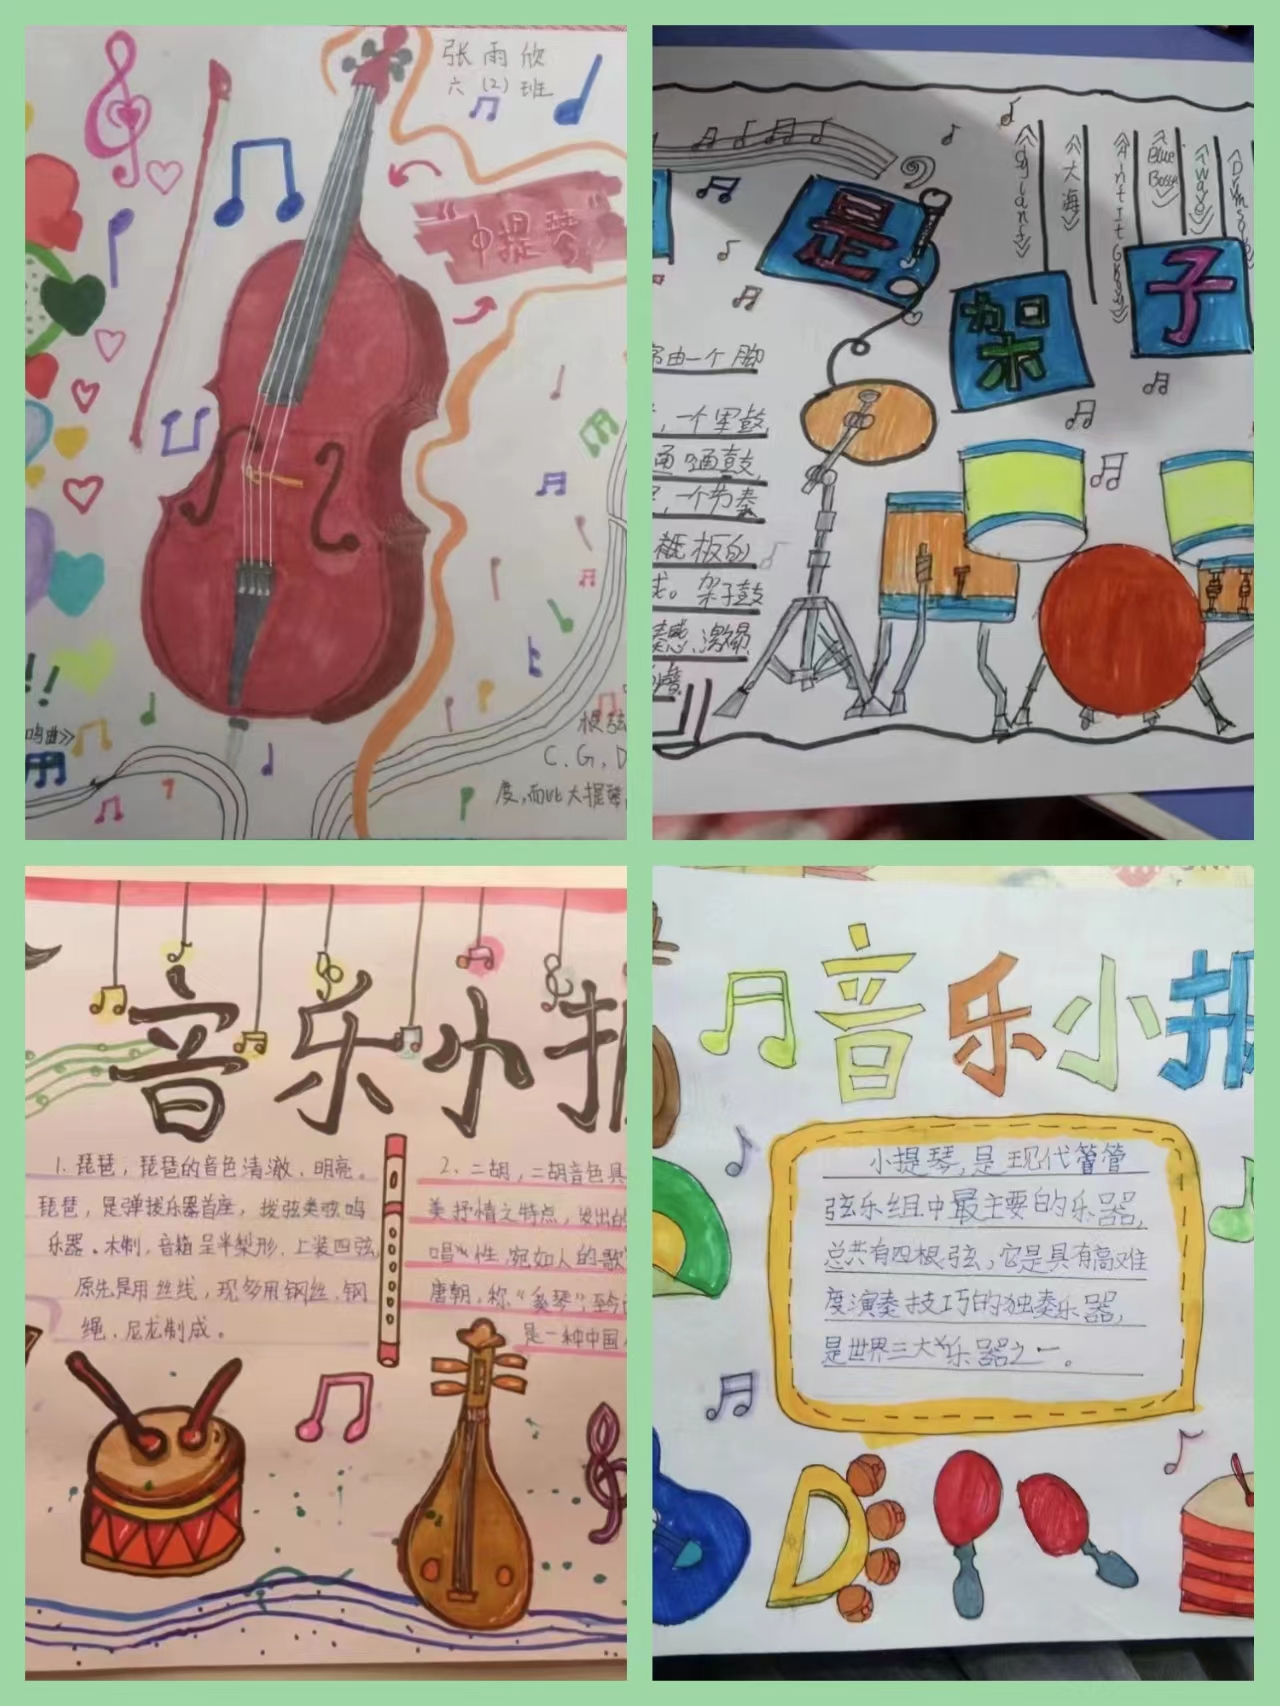 张雨欣
六(2)班
"中提琴"
鸣曲》
C.G,D
度,而比大提琴
是
架
子
《大海》
一个军鼓
嗵嗵鼓
一个节奏
架子鼓
音乐小报
1. 琵琶,琵琶的音色清澈、明亮。
琵琶,是弹拨乐器首座,拨弦类弦鸣
乐器。木制,音箱呈半梨形,上装四弦,
原先是用丝线,现多用钢丝、钢
绳、尼龙制成。
2、二胡,二胡音色具
美抒情之特点,发出的
唱性,宛如人的歌
唐朝,称"奚琴",至今
是一种中国
音乐小报
小提琴,是现代管管
弦乐组中最主要的乐器,
总共有四根弦,它是具有高难
度演奏技巧的独奏乐器,
是世界三大乐器之一。